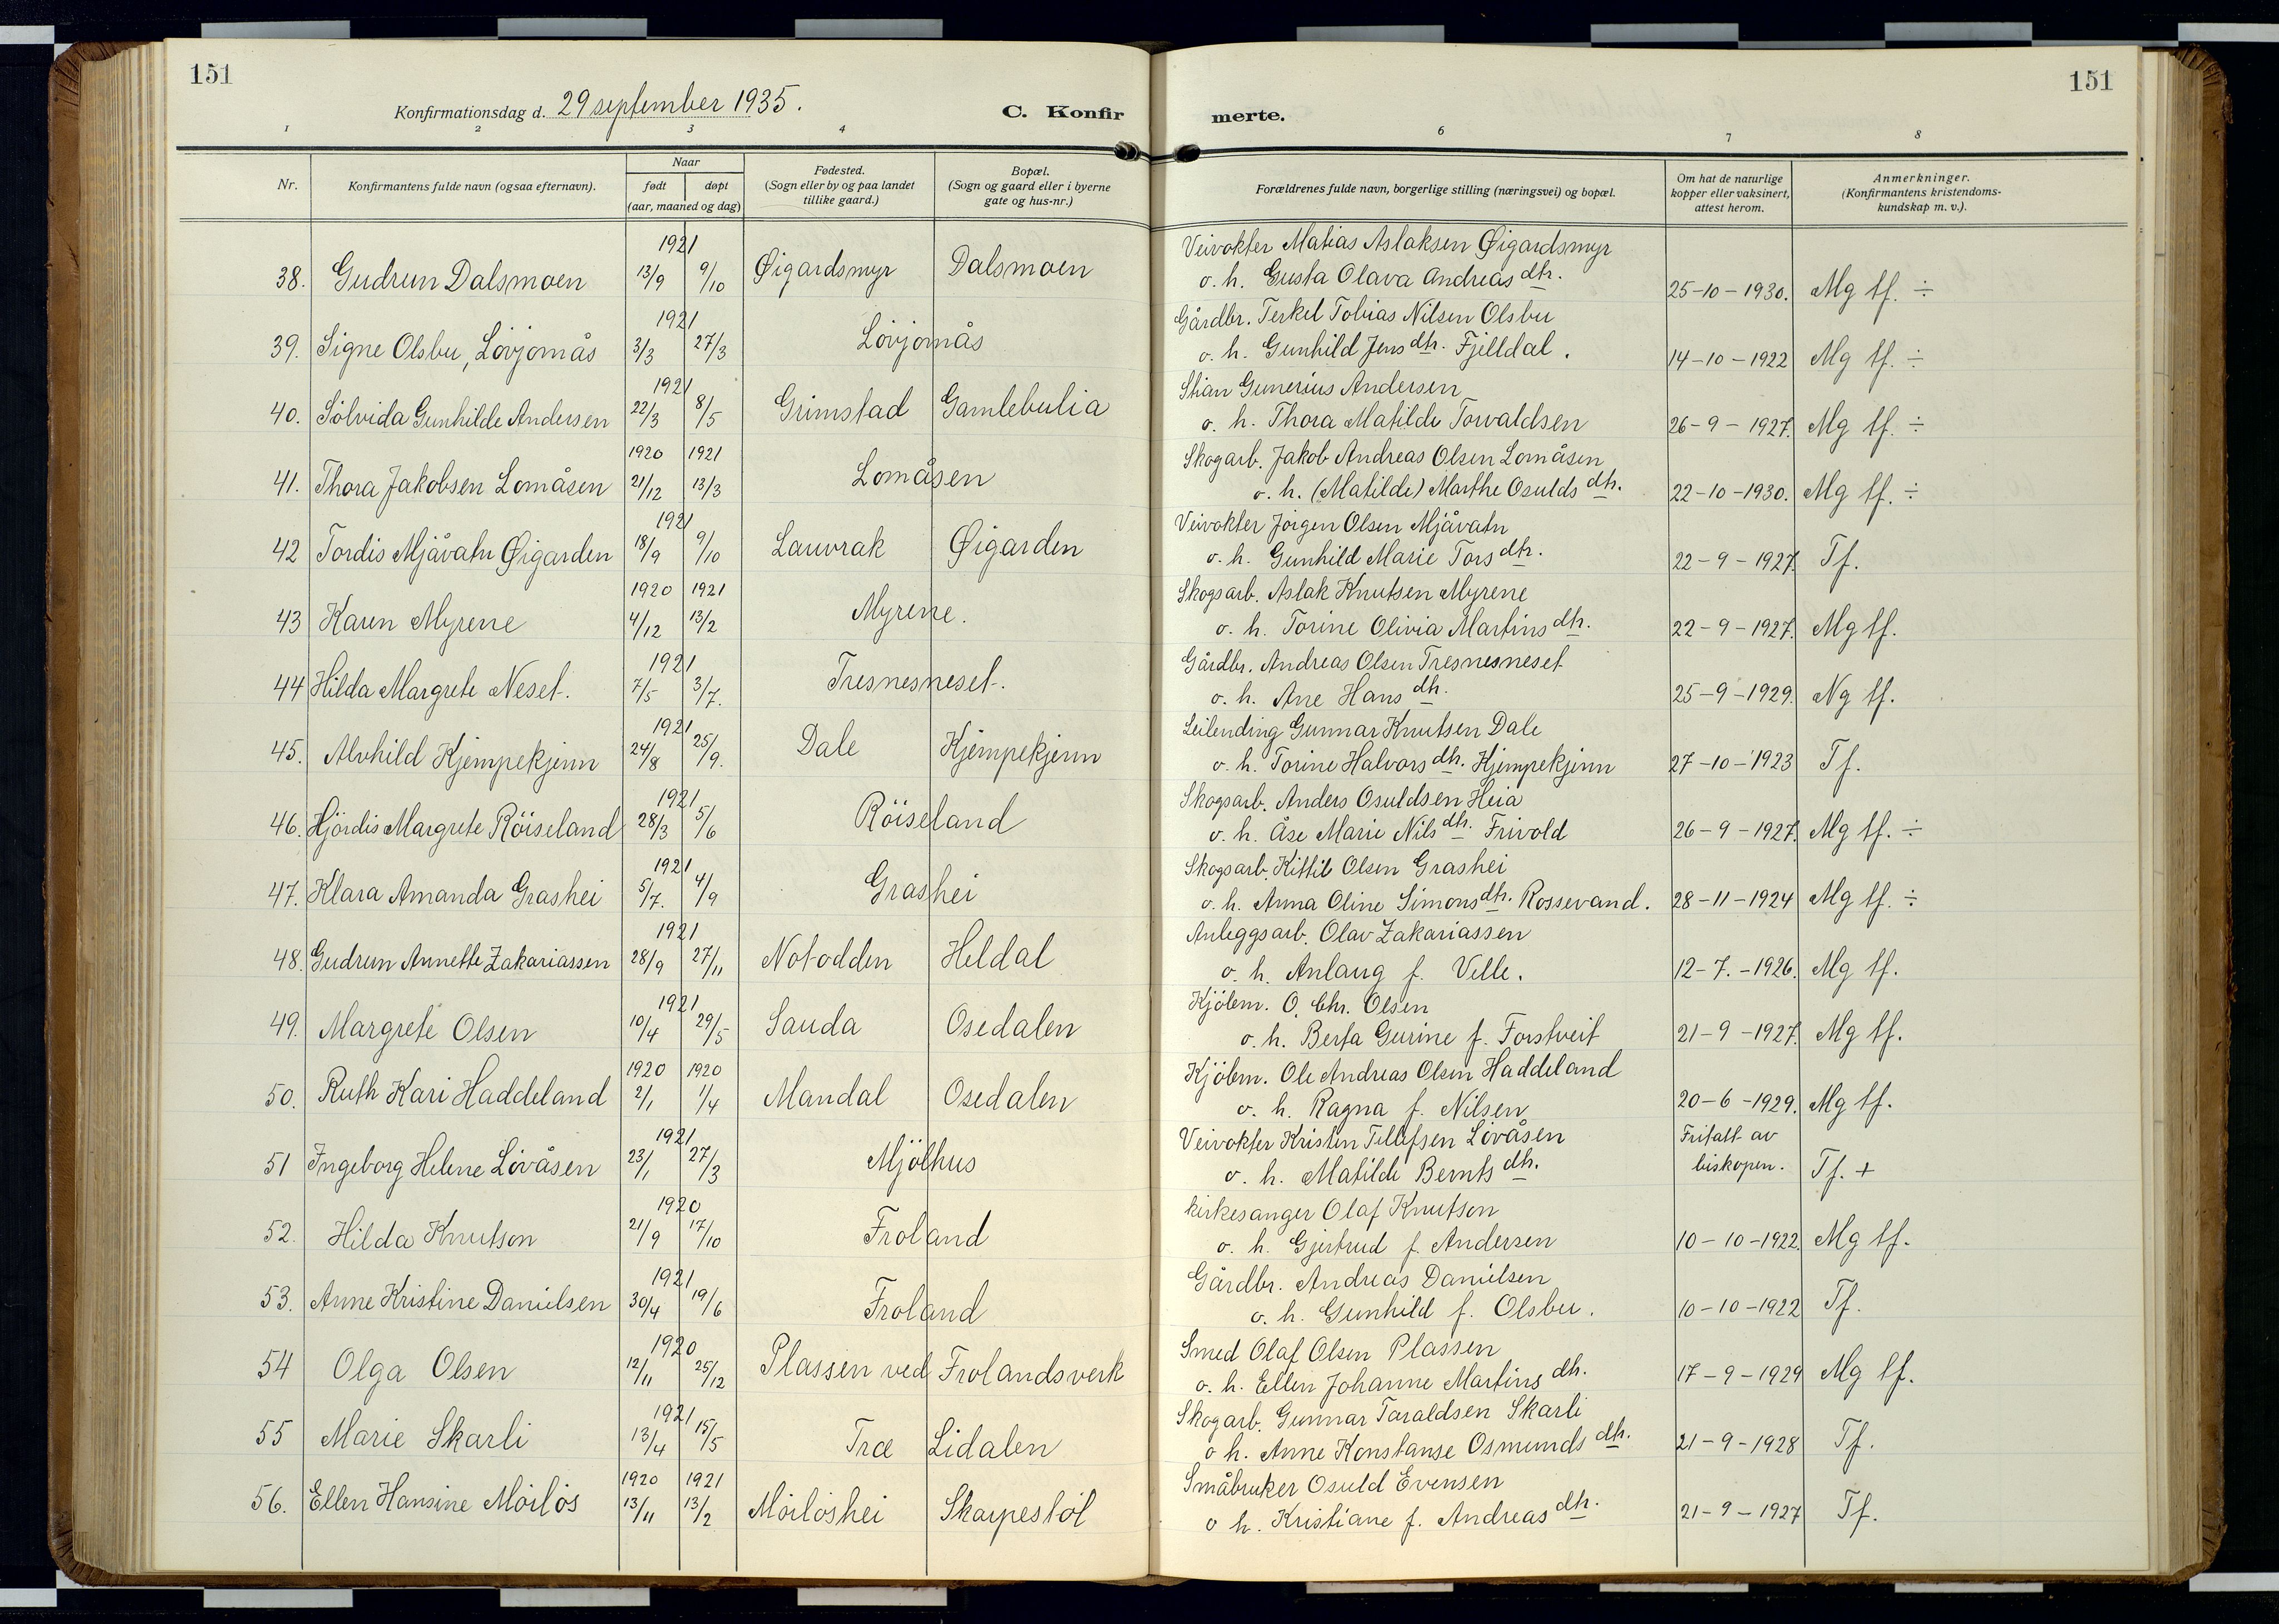 151
151
Konfirmationsdag d. 29 september 1935.
C. Konfir
merte.
1 2 3 4 6 7 8
Nr.
Konfirmantens fulde navn (ogsaa efternavn).
Naar
født døpt
(aar, maaned og dag)
Fødested.
(Sogn eller by og paa landet
tillike gaard.)
Bopæl.
(Sogn og gaard eller i byerne
gate og hus-nr.)
Forældrenes fulde navn, borgerlige stilling (næringsvei) og bopæl.
Om hat de naturlige
kopper eller vaksinert,
attest herom.
Anmerkninger.
(Konfirmantens kristendoms-
kundskap m. v.).
1921 Veivokter Matias Aslaksen Øigardsmyr
38. Gudrun Dalsmoen 13/9 9/10 Øigardsmyr Dalsmoen o. h. Gusta Olava Andreas dtr. 25-10-1930. Mg tf. ÷
1921 Gårdbr. Terkel Tobias Nilsen Olsbu
39. Signe Olsbu, Lövjomås 3/3 27/3 Lövjomås o. h. Gunhild Jens dtr. Fjelldal. 14-10-1922 Mg tf. ÷
1921 Stian Gunerius Andersen
40. Sölvida Gunhilde Andersen 22/3 8/5 Grimstad Gamlebulia o. h. Thora Matilde Torvaldsen 26-9-1927. Mg tf. ÷
1920 1921 Skogarb. Jakob Andreas Olsen Lomåsen
41. Thora Jakobsen Lomåsen 21/12 13/3 Lomåsen o. h. (Matilde) Marthe Osulds dtr. 22-10-1930. Mg tf. ÷
1921 Veivokter Jörgen Olsen Mjåvatn
42 Tordis Mjåvatn Øigarden 18/9 9/10 Lauvrak Øigarden o. h. Gunhild Marie Tors dtr. 22-9-1927. Tf.
1920 1921 Skogsarb. Aslak Knutsen Myrene
43 Karen Myrene 4/12 13/2 Myrene. o. h. Torine Olivia Martins dtr. 22-9-1927. Mg tf.
1921 Gårdbr. Andreas Olsen Tresnesneset
44 Hilda Margrete Neset. 7/5 3/7. Tresnesneset. o. h. Ane Hans dtr. 25-9-1929. Ng tf.
1921 Leilending Gunnar Knutsen Dale
45. Alvhild Kjempekjenn 24/8 25/9. Dale Kjempekjenn o. h. Torine Halvors dtr. Kjempekjenn 27-10-1923 Tf.
1921 Skogsarb. Anders Osuldsen Heia
46. Hjördis Margrete Röiseland 28/3 5/6 Röiseland o. h. Åse Marie Nils dtr. Frivold 26-9-1927. Mg tf. ÷
1921 Skogsarb. Kittil Olsen Grashei
47. Klara Amanda Grashei 5/7. 4/9 Grashei o. h. Anna Oline Simons dtr. Rossevand. 28-11-1924 Mg tf. ÷
1921 Anleggsarb. Olav Zakariassen
48. Gudrun Annette Zakariassen 28/9 27/11 Notodden Heldal o. h. Anlaug f. Velle. 12-7.-1926. Mg tf.
1921 Kjöbm. O. Chr. Olsen
49. Margrete Olsen 10/4 29/5 Sauda Osedalen o. h. Berta Gurine f. Forstveit 21-9-1927. Mg tf.
1920 1920 Kjöbm. Ole Andreas Olsen Haddeland
50. Ruth Kari Haddeland 2/1 1/4 Mandal Osedalen o. h. Ragna f. Nilsen 20-6-1929. Mg tf.
1921 Veivokter Kristen Tellefsen Lövåsen Fritatt av
51 Ingeborg Helene Lövåsen 23/1 27/3 Mjölhus o. h. Matilde Bernts dtr. biskopen. Tf. +
1920 kirkesanger Olaf Knutson
52. Hilda Knutson 21/9 17/10 Froland o. h. Gjertrud f. Andersen 10-10-1922. Mg tf.
1921 Gårdbr. Andreas Danielsen
53. Anne Kristine Danielsen 30/4 19/6 Froland o. h. Gunhild f. Olsbu. 10-10-1922 Tf.
1920 Smed Olaf Olsen Plassen
54 Olga Olsen 12/11 25/12 Plassen ved Frolandsverk o. h. Ellen Johanne Martins dtr. 17-9-1929 Mg tf.
1921 Skogarb. Gunnar Taraldsen Skarli
55 Marie Skarli 13/4 15/5 Træ Lidalen o h. Anne Konstanse Osmunds dtr. 21-9-1928 Tf.
1920 1921 Småbruker Osuld Evensen
56. Ellen Hansine Mörlös 13/11 13/2 Mörlöshei Skarpestöl o h. Kristiane f. Andreas dtr. 21-9-1927 Tf.